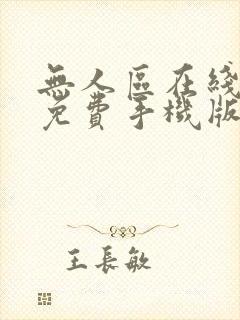 無人區在綫
免費手機版
王長敏